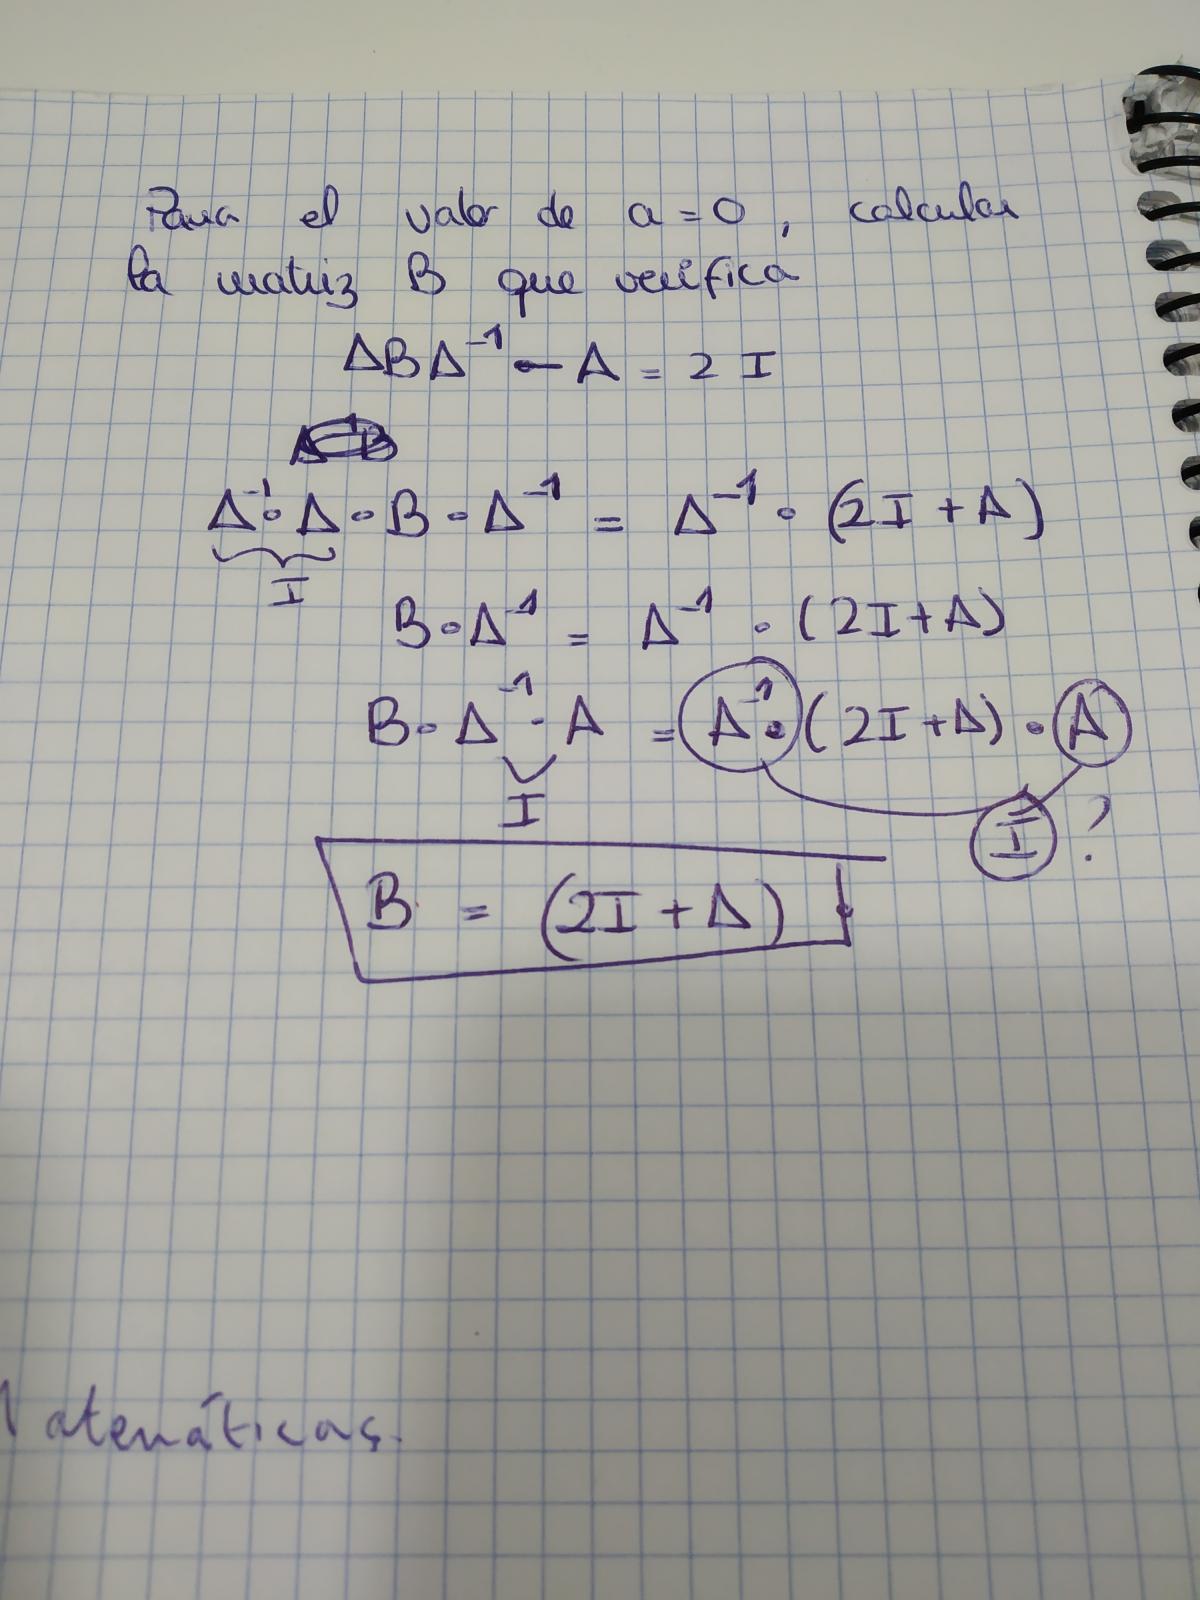 Para el valor de a = 0, calcular
la matriz B que verifica
ABA⁻¹ - A = 2 I
A⁻¹ · A · B · A⁻¹ = A⁻¹ · (2I + A)
I
B · A⁻¹ = A⁻¹ · (2I + A)
B · A⁻¹ · A = A⁻¹ · (2I + A) · A
I
I ?
B = (2I + A)
Matemáticas.